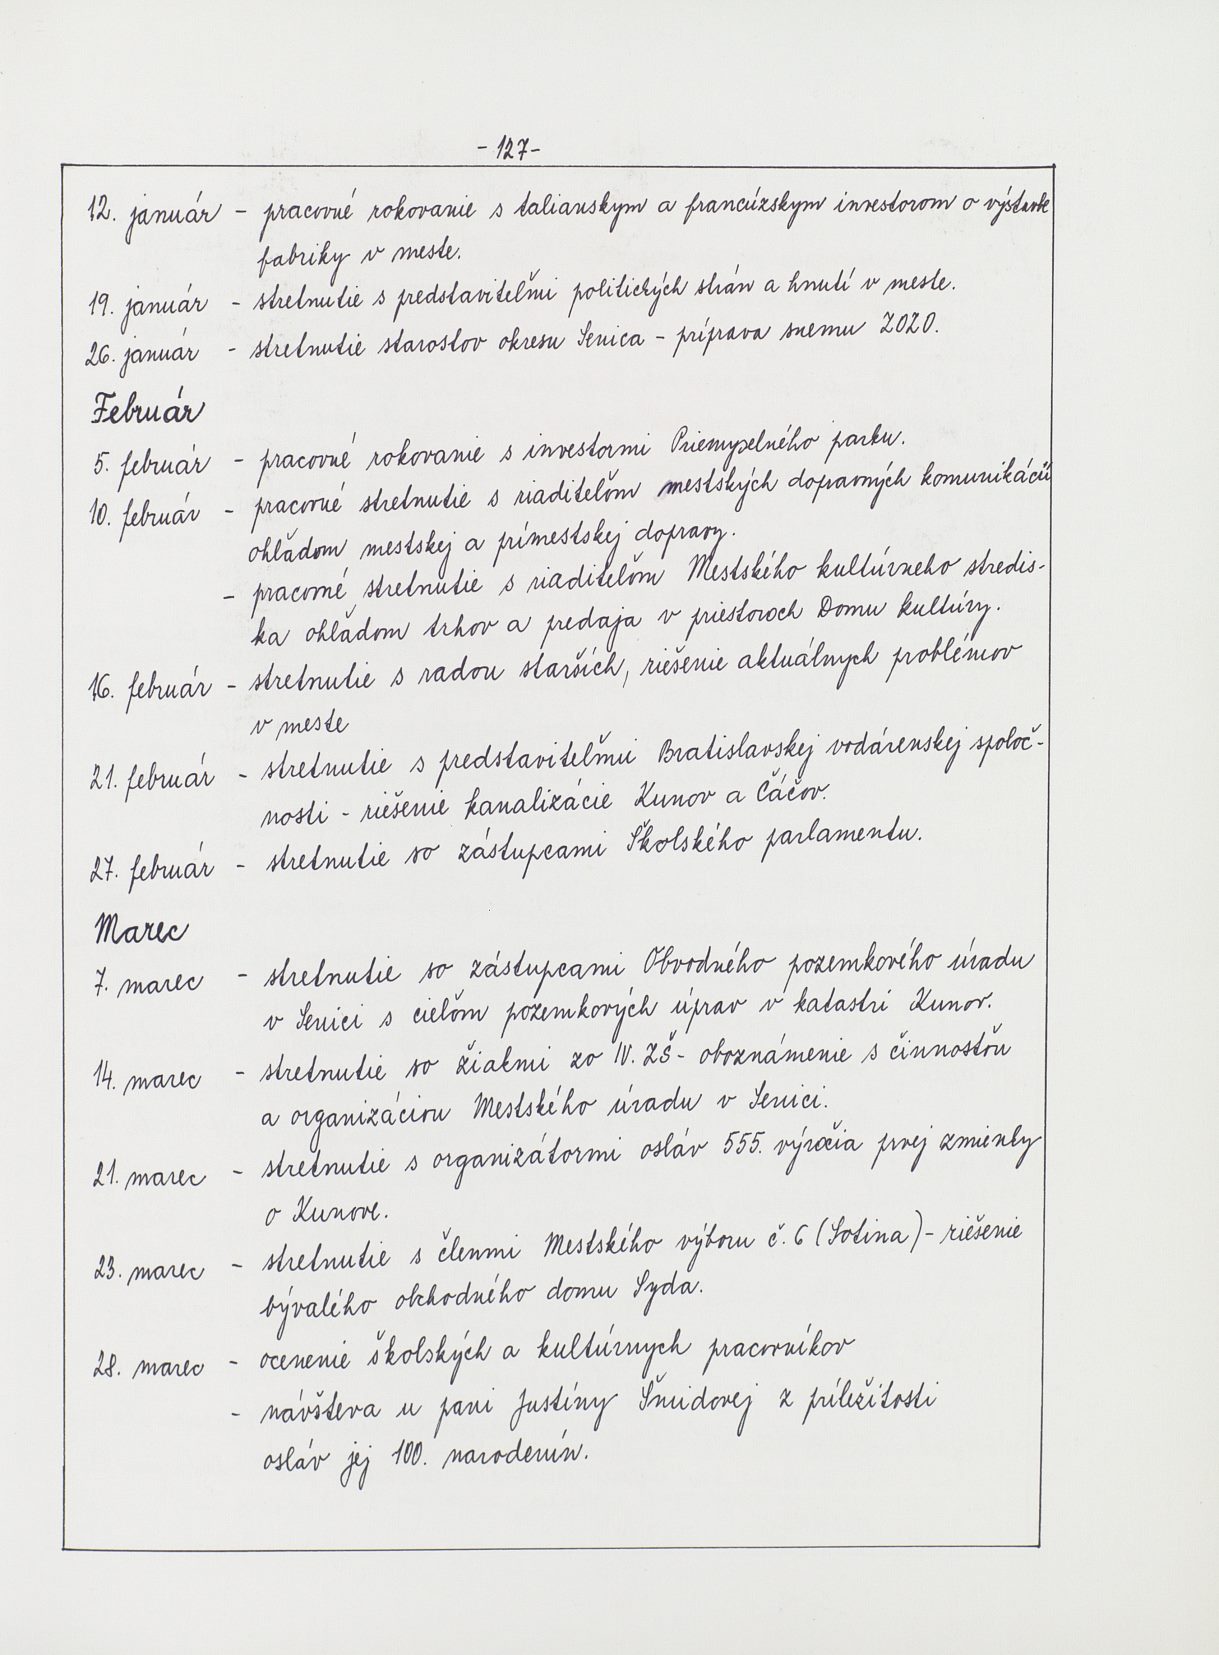 - 127 -
12. január - pracovné rokovanie s talianskym a francúzskym investorom o výstavbe
fabriky v meste.
19. január - stretnutie s predstaviteľmi politických strán a hnutí v meste.
26. január - stretnutie starostov okresu Senica - príprava snemu 2020.
Február
5. február - pracovné rokovanie s investormi Priemyselného parku.
10. február - pracovné stretnutie s riaditeľom mestských dopravných komunikácií
ohľadom mestskej a prímestskej dopravy.
- pracovné stretnutie s riaditeľom Mestského kultúrneho stredis-
ka ohľadom trhov a predaja v priestoroch Domu kultúry.
16. február - stretnutie s radou starších, riešenie aktuálnych problémov
v meste
21. február - stretnutie s predstaviteľmi Bratislavskej vodárenskej spoloč-
nosti - riešenie kanalizácie Kunov a Čáčov.
27. február - stretnutie so zástupcami Školského parlamentu.
Marec
7. marec - stretnutie so zástupcami Obvodného pozemkového úradu
v Senici s cieľom pozemkových úprav v katastri Kunov.
14. marec - stretnutie so žiakmi zo IV. ZŠ - oboznámenie s činnosťou
a organizáciou Mestského úradu v Senici.
21. marec - stretnutie s organizátormi osláv 555. výročia prvej zmienky
o Kunove.
23. marec - stretnutie s členmi Mestského výboru č. 6 (Sotina) - riešenie
bývalého obchodného domu Syda.
28. marec - ocenenie školských a kultúrnych pracovníkov
- návšteva u pani Justíny Šmidovej z príležitosti
osláv jej 100. narodenín.